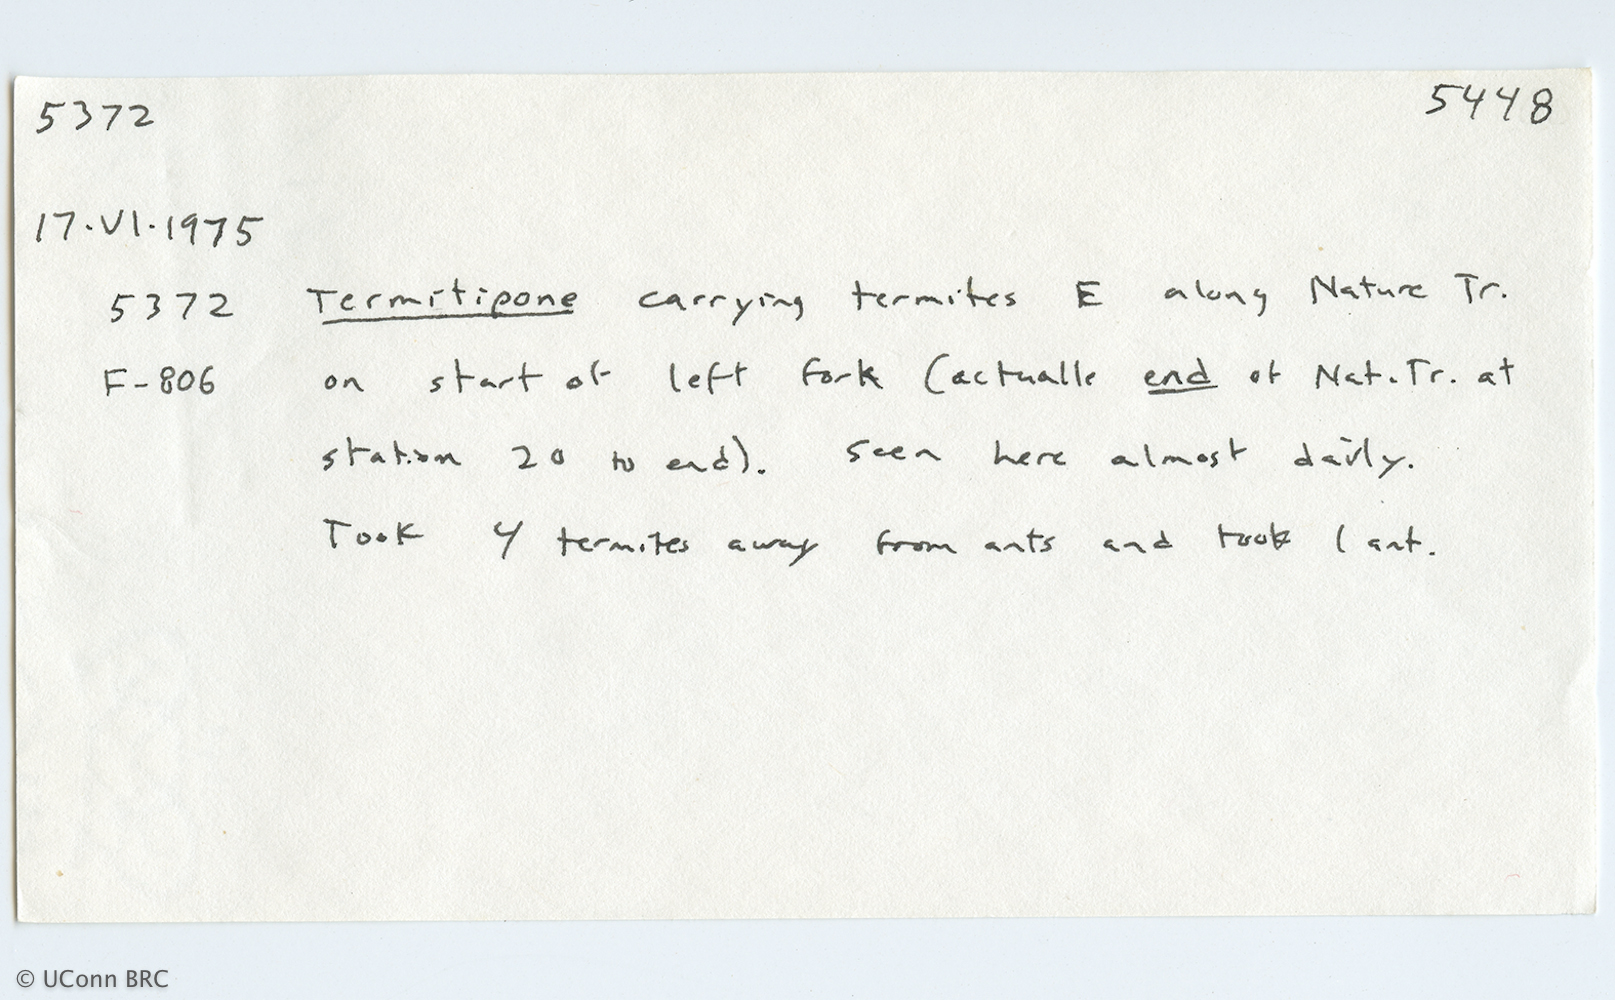 5372 5448
17.VI.1975
5372 Termitipone carrying termites E along Nature Tr.
F-806 on start of left fork (actualle end of Nat. Tr. at
station 20 to end). Seen here almost daily.
Took 4 termites away from ants and took 1 ant.
© UConn BRC